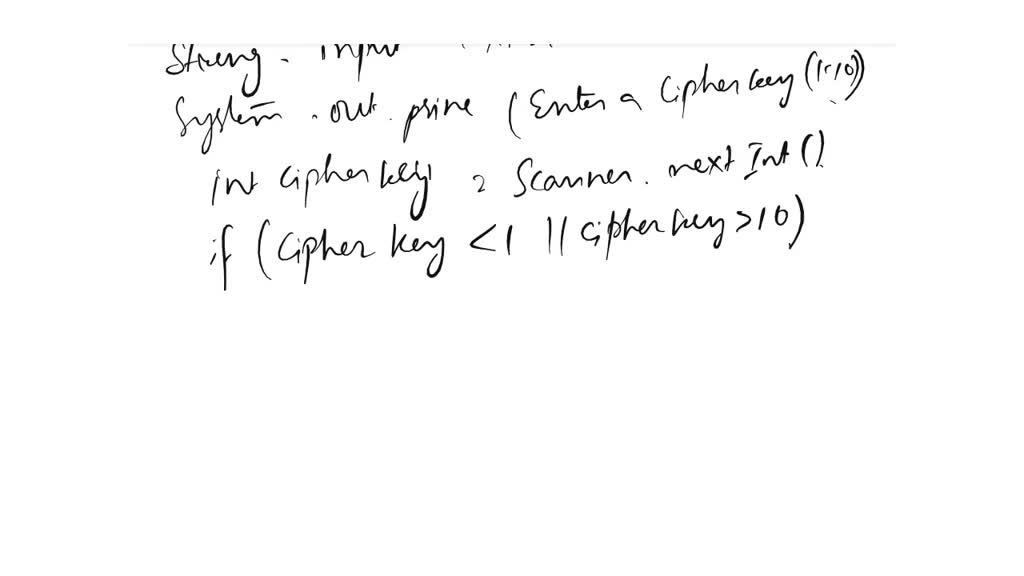 String . Input
System . out . print (Enter a Cipher key (1-10))
int cipher key = Scanner . next Int ()
if (Cipher key < 1 || cipher key > 10)